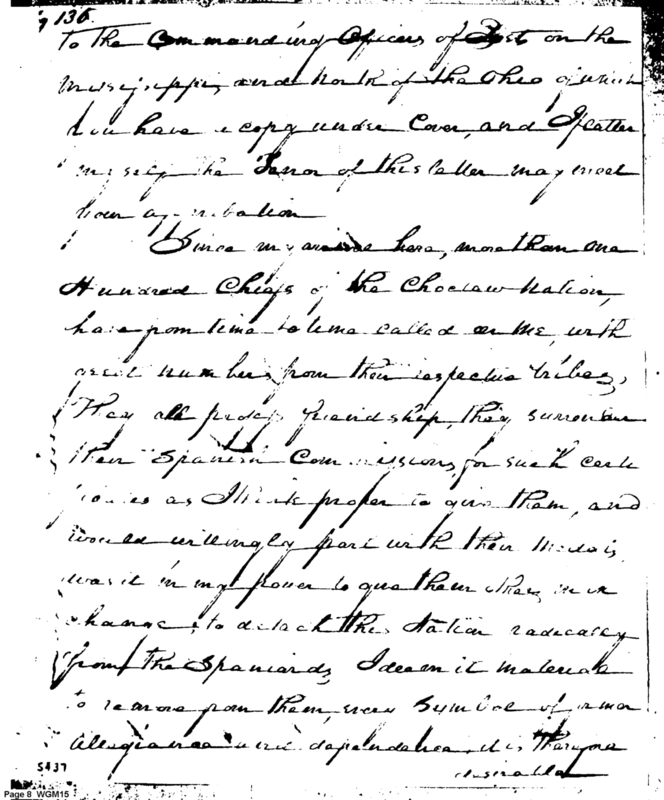 136.
to the Commanding Officers of Post on the
Mississippi, and North of the Ohio of which
You have a copy under Cover, and I flatter
myself the Tenor of this letter may meet
Your approbation
Since my arrival here, more than one
Hundred Chiefs of the Choctaw Nation,
have from time to time called on me, with
great numbers from their respective tribes,
They all profess friendship, they surrender
their Spanish Commissions, for such certi
ficates as I think proper to give them, and
would willingly part with their Medals,
was it in my power to give them others in ex
change, to detach this Nation radically
from the Spaniards, I deem it material
to remove from them, every Symbol of former
Allegiance and dependence, it is therefore
desirable
5437
Page 8 WGM15